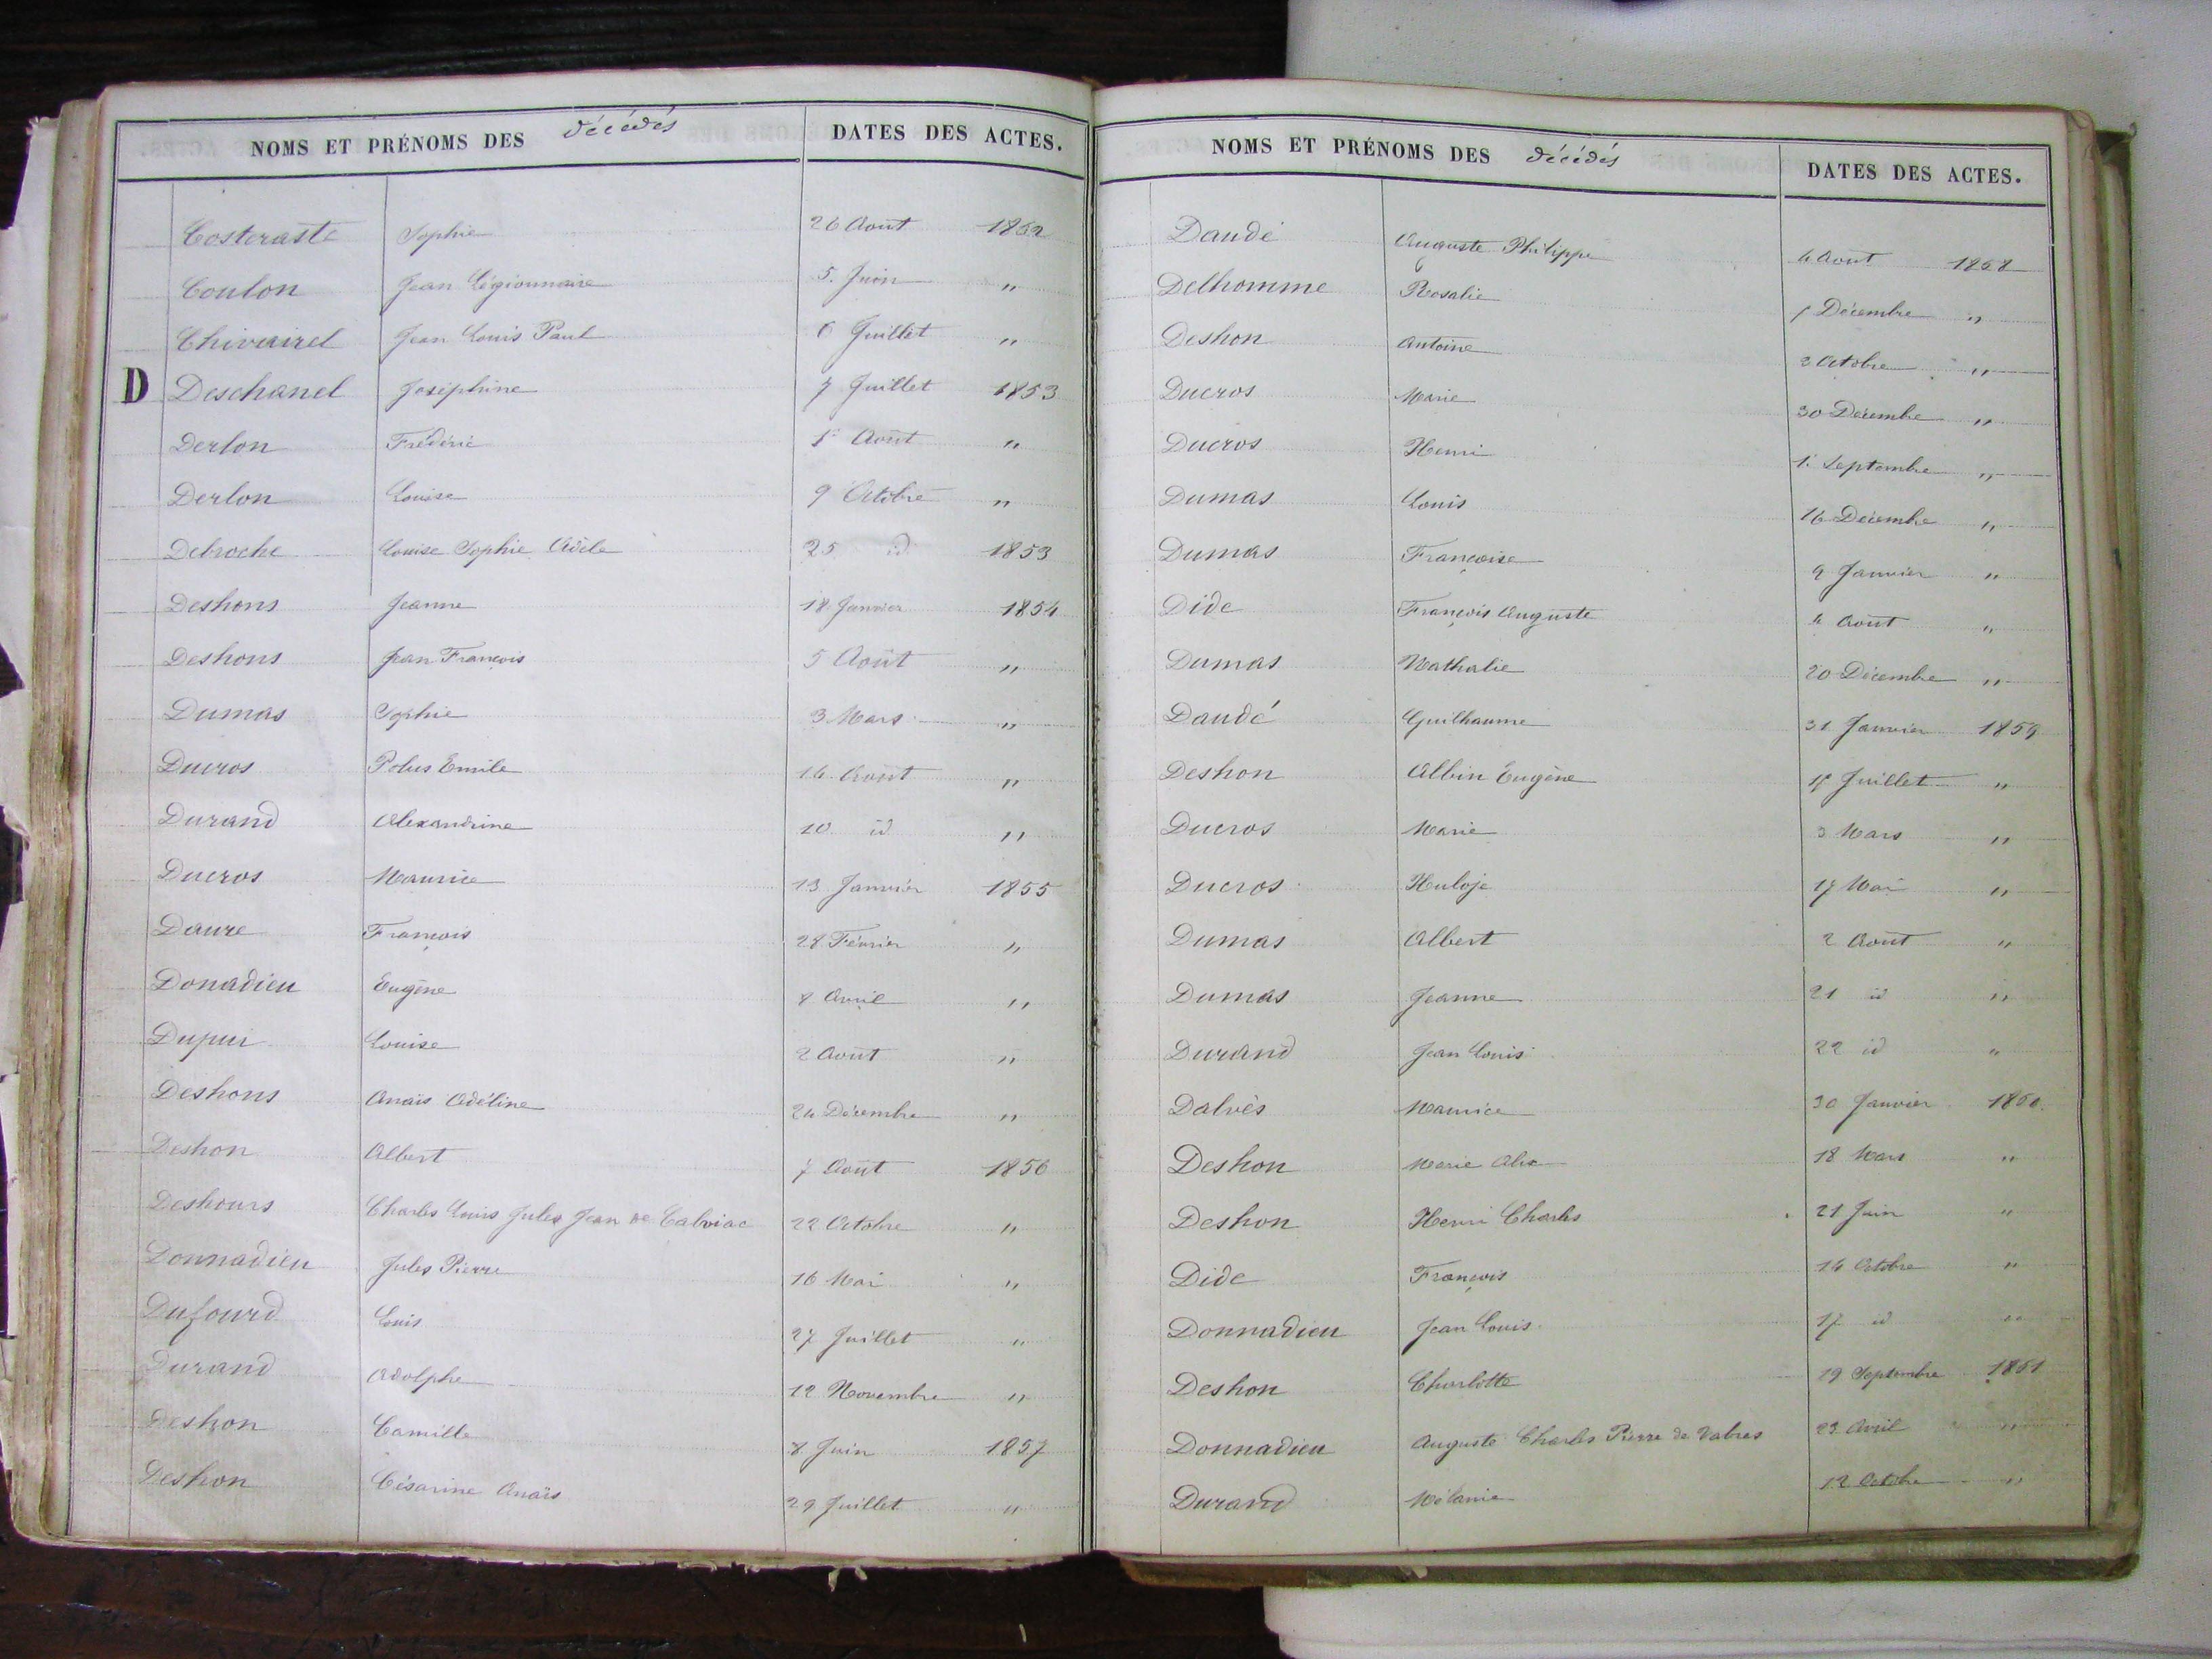 NOMS ET PRÉNOMS DES décédés DATES DES ACTES.
Costeraste Sophie 26 Août 1862
Coulon Jean Légionnaire 5. Juin "
Chivairel Jean Louis Paul 6 Juillet "
D Deschanel Joséphine 7 Juillet 1853
Derlon Frédéric 1er Août "
Derlon Louise 9 Octobre "
Debroche Louise Sophie Adèle 25 id 1853
Deshons Jeanne 18 Janvier 1854
Deshons Jean François 5 Août "
Dumas Sophie 3 Mars "
Ducros Polus Emile 14 Août "
Durand Alexandrine 10 id "
Ducros Maurice 13 Janvier 1855
Daure François 28 Février "
Donadieu Eugène 8 Avril "
Dupui Louise 2 Août "
Deshons Anaïs Adéline 24 Décembre "
Deshon Albert 7 Août 1856
Deshours Charles Louis Jules Jean de Calviac 22 Octobre "
Donnadieu Jules Pierre 16 Mai "
Dufourd Louis 27 Juillet "
Durand Adolphe 12 Novembre "
Deshon Camille 8 Juin 1857
Deshon Césarine Anaïs 29 Juillet "
NOMS ET PRÉNOMS DES décédés DATES DES ACTES.
Daudé Auguste Philippe 4 Août 1858
Delhomme Rosalie 1 Décembre "
Deshon Antoine 2 Octobre "
Ducros Marie 30 Décembre "
Ducros Henri 1er Septembre "
Dumas Louis 16 Décembre "
Dumas Françoise 9 Janvier "
Dide François Auguste 4 Août "
Dumas Nathalie 20 Décembre "
Daudé Guilhaume 31 Janvier 1859
Deshon Albin Eugène Juillet "
Ducros Marie 3 Mars "
Ducros Huloje 17 Mai "
Dumas Albert 2 Août "
Dumas Jeanne 21 id "
Durand Jean Louis 22 id "
Dalvès Maurice 30 Janvier
Deshon Marie Alix 18 Mars "
Deshon Henri Charles 21 Juin "
Dide François 14 Octobre "
Donnadieu Jean Louis 17 id "
Deshon Charlotte 19 Septembre 1861
Donnadieu Auguste Charles Pierre de Vabres 23 Avril "
Durand Mélanie 12 Octobre "